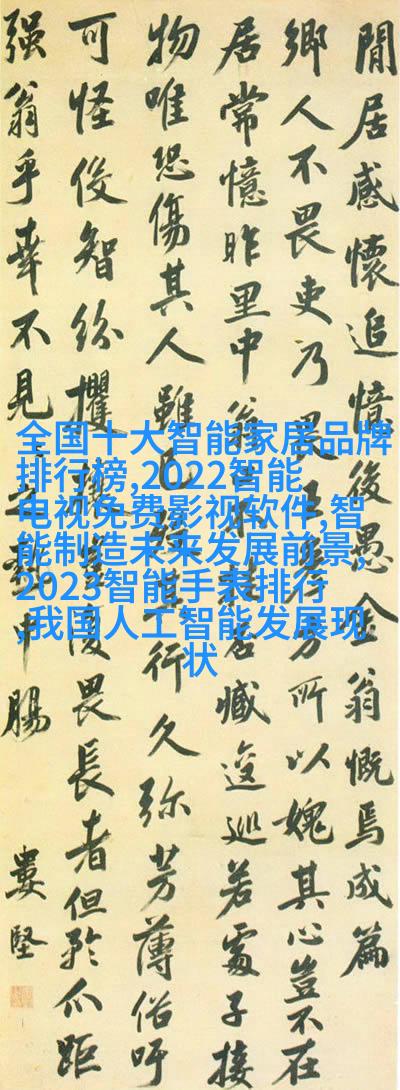 閒居感懷追憶後愚金翁慨焉成篇
鄉人不畏吏乃畏王方所以媿其心豈不在
居常憶昨里中翁臧逡巡若處子接
物唯恐傷其人雖已其行久弥芳薄俗吁
可怪俊智紛攫復畏長者但矜爪距
强翁乎幸不見中腸
婁堅
全国十大智能家居品牌
排行榜,2022智能
电视免费影视软件,智
能制造未来发展前景,
2023智能手表排行
,我国人工智能发展现
状